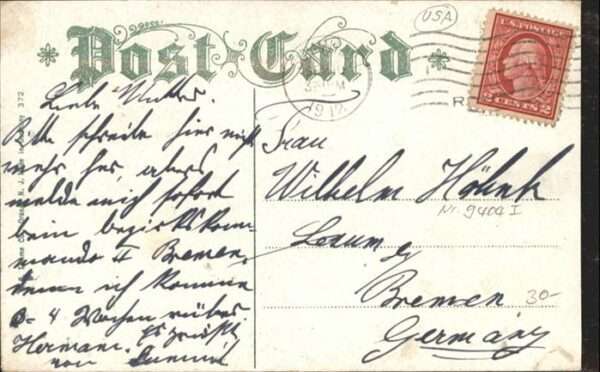 Post Card
USA
U.S. POSTAGE
2 CENTS 2
1912
372
Liebe Mutter.
Bitte schreibe hier nicht
mehr her, aber
melde mich sofort
beim bezirkskom-
mando II Bremen,
denn ich komme
3-4 Wochen rüber
Hermann. Es grüßt
von
Frau
Wilhelm Höhnk
Nr. 9404 I
Lesum
b/
Bremen
30-
Germany